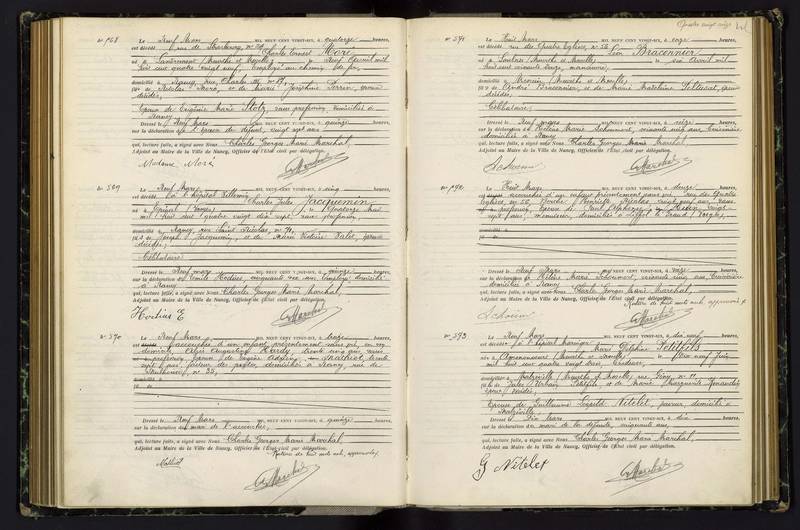 Quatre vingt onze
N° 568
Le Neuf Mars MIL NEUF CENT VINGT-SIX, à quatorze heures,
est décédé rue de Strasbourg, n° Charles Ernest Moré
né à (Meurthe et Moselle) le avril mil
huit cent quatre vingt neuf, employé au chemin de fer,
domicilié à Nancy, rue Charles
fils de Nicolas Moré, et de Marie Joséphine Perrin,
décédés,
Époux de Eugénie Marie Stotz, sans profession, domiciliée à
Nancy
Dressé le Neuf Mars MIL NEUF CENT VINGT-SIX, à heures,
sur la déclaration de l'épouse du défunt, vingt sept ans
qui, lecture faite, a signé avec Nous Charles Georges Marie Maréchal,
Adjoint au Maire de la Ville de Nancy, Officier de l'État civil par délégation.
Madame Moré
CMaréchal
N° 569
Le Neuf Mars MIL NEUF CENT VINGT-SIX, à cinq heures,
est décédé à l'hôpital Villemin Charles Jules Jacquemin
né à Épinal (Vosges) le quatorze mai
mil huit cent quatre vingt dix sept, sans profession,
domicilié à Nancy, rue Saint Nicolas, n°
fils de Joseph Jacquemin, et de Marie Victoire
décédés,
Célibataire
Dressé le Neuf mars MIL NEUF CENT VINGT-SIX, à quinze heures,
sur la déclaration de Emile Hostius, cinquante six ans, employé, domicilié
à Nancy
qui, lecture faite, a signé avec Nous Charles Georges Marie Maréchal,
Adjoint au Maire de la Ville de Nancy, Officier de l'État civil par délégation.
Hostius E
CMaréchal
N° 570
Le Neuf Mars MIL NEUF CENT VINGT-SIX, à treize heures,
est accouchée d'un enfant présentement sans vie, en son
domicile, Augustine Hardy, trente cinq ans, sans
profession, épouse de Eugène Mathiot, trente
sept ans, facteur des postes, domiciliés à Nancy, rue de
n° 33,
Dressé le Neuf Mars MIL NEUF CENT VINGT-SIX, à quinze heures,
sur la déclaration du mari de l'accouchée,
qui, lecture faite, a signé avec Nous Charles Georges Marie Maréchal,
Adjoint au Maire de la Ville de Nancy, Officier de l'État civil par délégation.
Rature de huit mots nuls, approuvée
Mathiot
CMaréchal
N° 571
Le Huit Mars MIL NEUF CENT VINGT-SIX, à onze heures,
est décédé rue des Quatre Églises, n° 56 Léon Bracennier
né à (Meurthe et Moselle) le dix Avril mil
huit cent soixante douze, manœuvre,
domicilié à (Meurthe et Moselle)
fils de André Bracennier, et de Marie Madeleine
décédés,
Célibataire
Dressé le Neuf mars MIL NEUF CENT VINGT-SIX, à seize heures,
sur la déclaration de Hélène Marie Schoumert, soixante cinq ans, Cuisinière
domiciliée à Nancy
qui, lecture faite, a signé avec Nous Charles Georges Marie Maréchal,
Adjoint au Maire de la Ville de Nancy, Officier de l'État civil par délégation.
CMaréchal
Le Huit Mars MIL NEUF CENT VINGT-SIX, à douze heures,
est accouchée d'un enfant présentement sans vie, rue des Quatre
Églises, n° 56, Henriette Nicolas, vingt neuf ans, sans
profession, épouse de Paul
sept ans, menuisier, domiciliés à Liffol le Grand (Vosges),
Dressé le Neuf Mars MIL NEUF CENT VINGT-SIX, à seize heures,
sur la déclaration de Hélène Marie Schoumert, soixante cinq ans, Cuisinière
domiciliée à Nancy
qui, lecture faite, a signé avec Nous Charles Georges Marie Maréchal,
Adjoint au Maire de la Ville de Nancy, Officier de l'État civil par délégation.
Rature de huit mots nuls, approuvée
CMaréchal
N° 573
Le Neuf Mars MIL NEUF CENT VINGT-SIX, à dix neuf heures,
est décédée à l'hôpital Maringer Marie Delphine Petitfils
née à (Meurthe et Moselle) le neuf Juin
mil huit cent quatre vingt trois,
domiciliée à Malzéville (Meurthe et Moselle), rue n° 11
fille de Jules Urbain Petitfils, et de Marie Marguerite
époux décédés,
Épouse de Guillaume Nitelet, paveur, domicilié à
Malzéville
Dressé le Dix Mars MIL NEUF CENT VINGT-SIX, à dix heures,
sur la déclaration du mari de la défunte, cinquante ans,
qui, lecture faite, a signé avec Nous Charles Georges Marie Maréchal,
Adjoint au Maire de la Ville de Nancy, Officier de l'État civil par délégation.
G Nitelet
CMaréchal